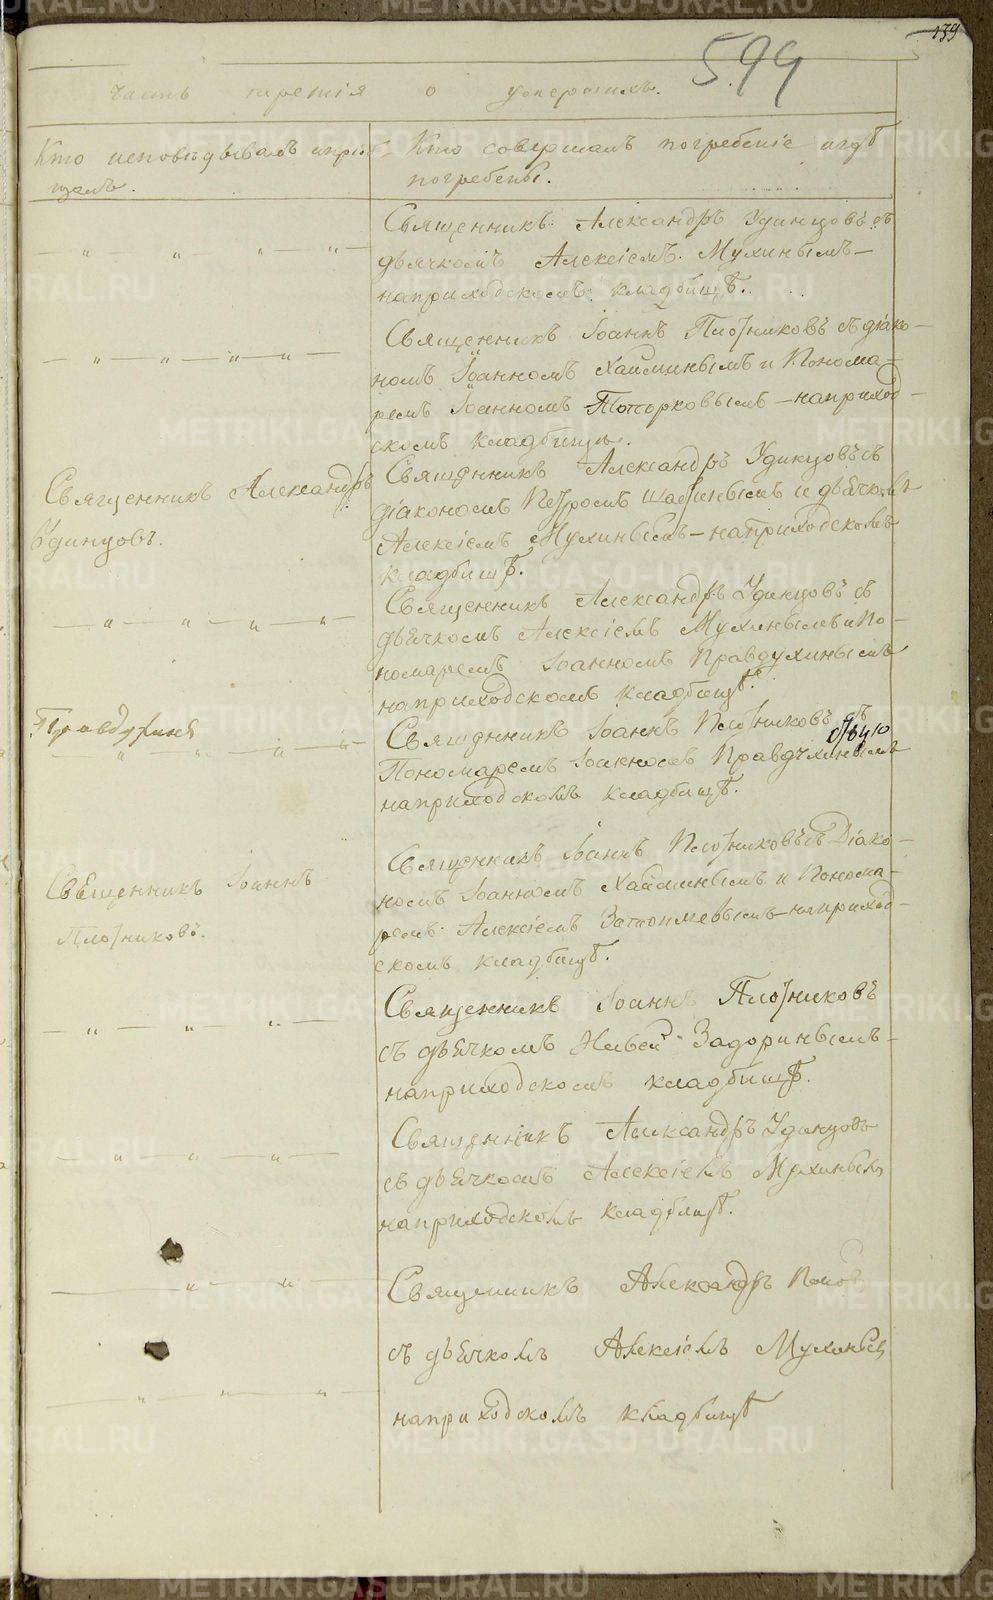 139
599
часть третiя о умершихъ.
Кто исповѣдывалъ и приоб-
щалъ.
Кто совершалъ погребенiе и гдѣ
погребены.
Священникъ Александръ Удинцовъ съ
дьячкомъ Алексiемъ Мухинымъ—
на приходскомъ кладбищѣ.
Священникъ Iоаннъ Плотниковъ съ дiако-
номъ Iоанномъ Хайминымъ и Понома-
ремъ Iоанномъ Топорковымъ — на приход-
скомъ кладбищѣ.
Священникъ Александръ
Удинцовъ.
Священникъ Александръ Удинцовъ съ
дiакономъ Петромъ и дьячкомъ
Алексiемъ Мухинымъ — на приходскомъ
кладбищѣ.
Священникъ Александръ Удинцовъ съ
дьячкомъ Алексiемъ Мухинымъ и По-
номаремъ Iоанномъ Правдухинымъ
на приходскомъ кладбищѣ.
Священникъ Iоаннъ Плотниковъ съ
Пономаремъ Iоанномъ Правдухинымъ
на приходскомъ кладбищѣ.
Священникъ Iоаннъ
Плотниковъ.
Священникъ Iоаннъ Плотниковъ съ Дiако-
номъ Iоанномъ Хайминымъ и Понома-
ремъ Алексiемъ на приход-
скомъ кладбищѣ.
Священникъ Iоаннъ Плотниковъ
съ дьячкомъ Задоринымъ-
на приходскомъ кладбищѣ.
Священникъ Александръ Удинцовъ
съ дьячкомъ Алексiемъ Мухинымъ
на приходскомъ кладбищѣ.
Священникъ Александръ Попов
съ дьячкомъ Алексiемъ Мухинымъ
на приходскомъ кладбищѣ
METRIKI.GASO-URAL.RU